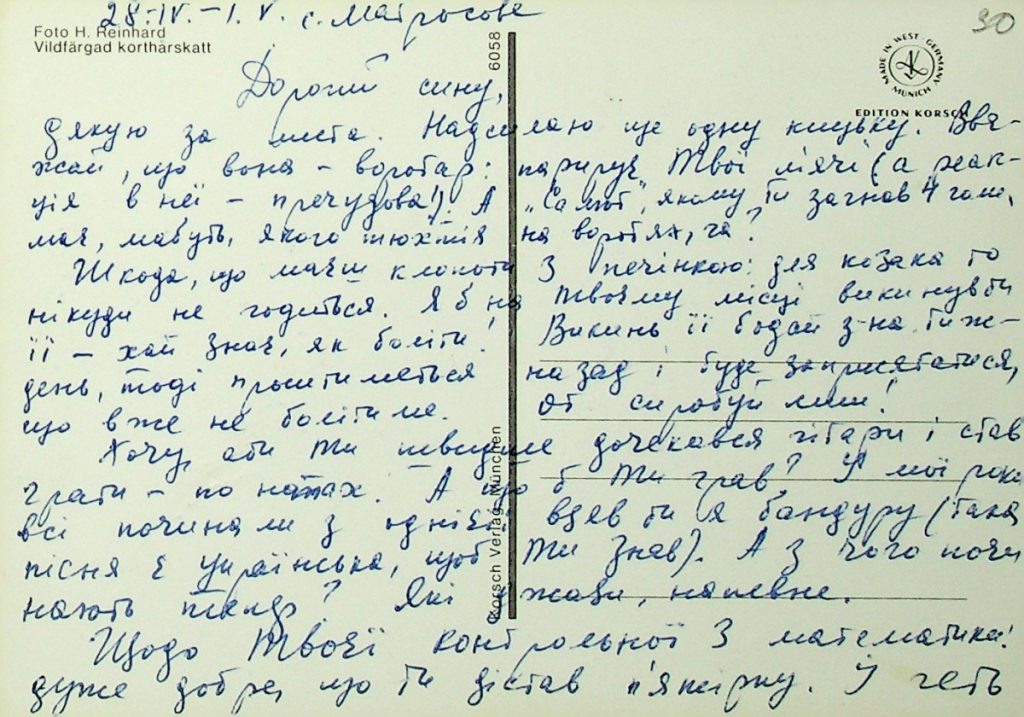 28-IV.-1.V. с. Матросове
30
Foto H. Reinhard
Vildfärgad korthårskatt
6058
MADE IN WEST-GERMANY
MUNICH
EDITION KORSCH
Korsch Verlag, München
Дорогий сину,
дякую за листа. Надсилаю ще одну кицьку. Вва-
жай, що вона – воротар: парирує Твої м'ячі (а реак-
ція в неї – пречудова!). А "Самот", якому ти загнав 4 голи,
має, мабуть, якого тюхтія на воротях, га?
Шкода, що маєш клопоти з печінкою: для козака то
нікуди не годиться. Я б на твоєму місці викинув би
її – хай знає, як боліти! Викинь її бодай з-на тиж-
день, тоді проситиметься назад і буде заприсягатися,
що вже не болітиме. От спробуй лиш!
Хочу, аби Ти швидше дочекався гітари і став
грати – по нотах. А що б Ти грав? У мої роки
всі починали з однієї: взяв би я бандуру (така
пісня є українська, щоб Ти знав). А з чого почи
нають тепер? Які джази, напевне.
Щодо Твоєї контрольної з математики:
дуже добре, що ти дістав п'ятірку. І геть